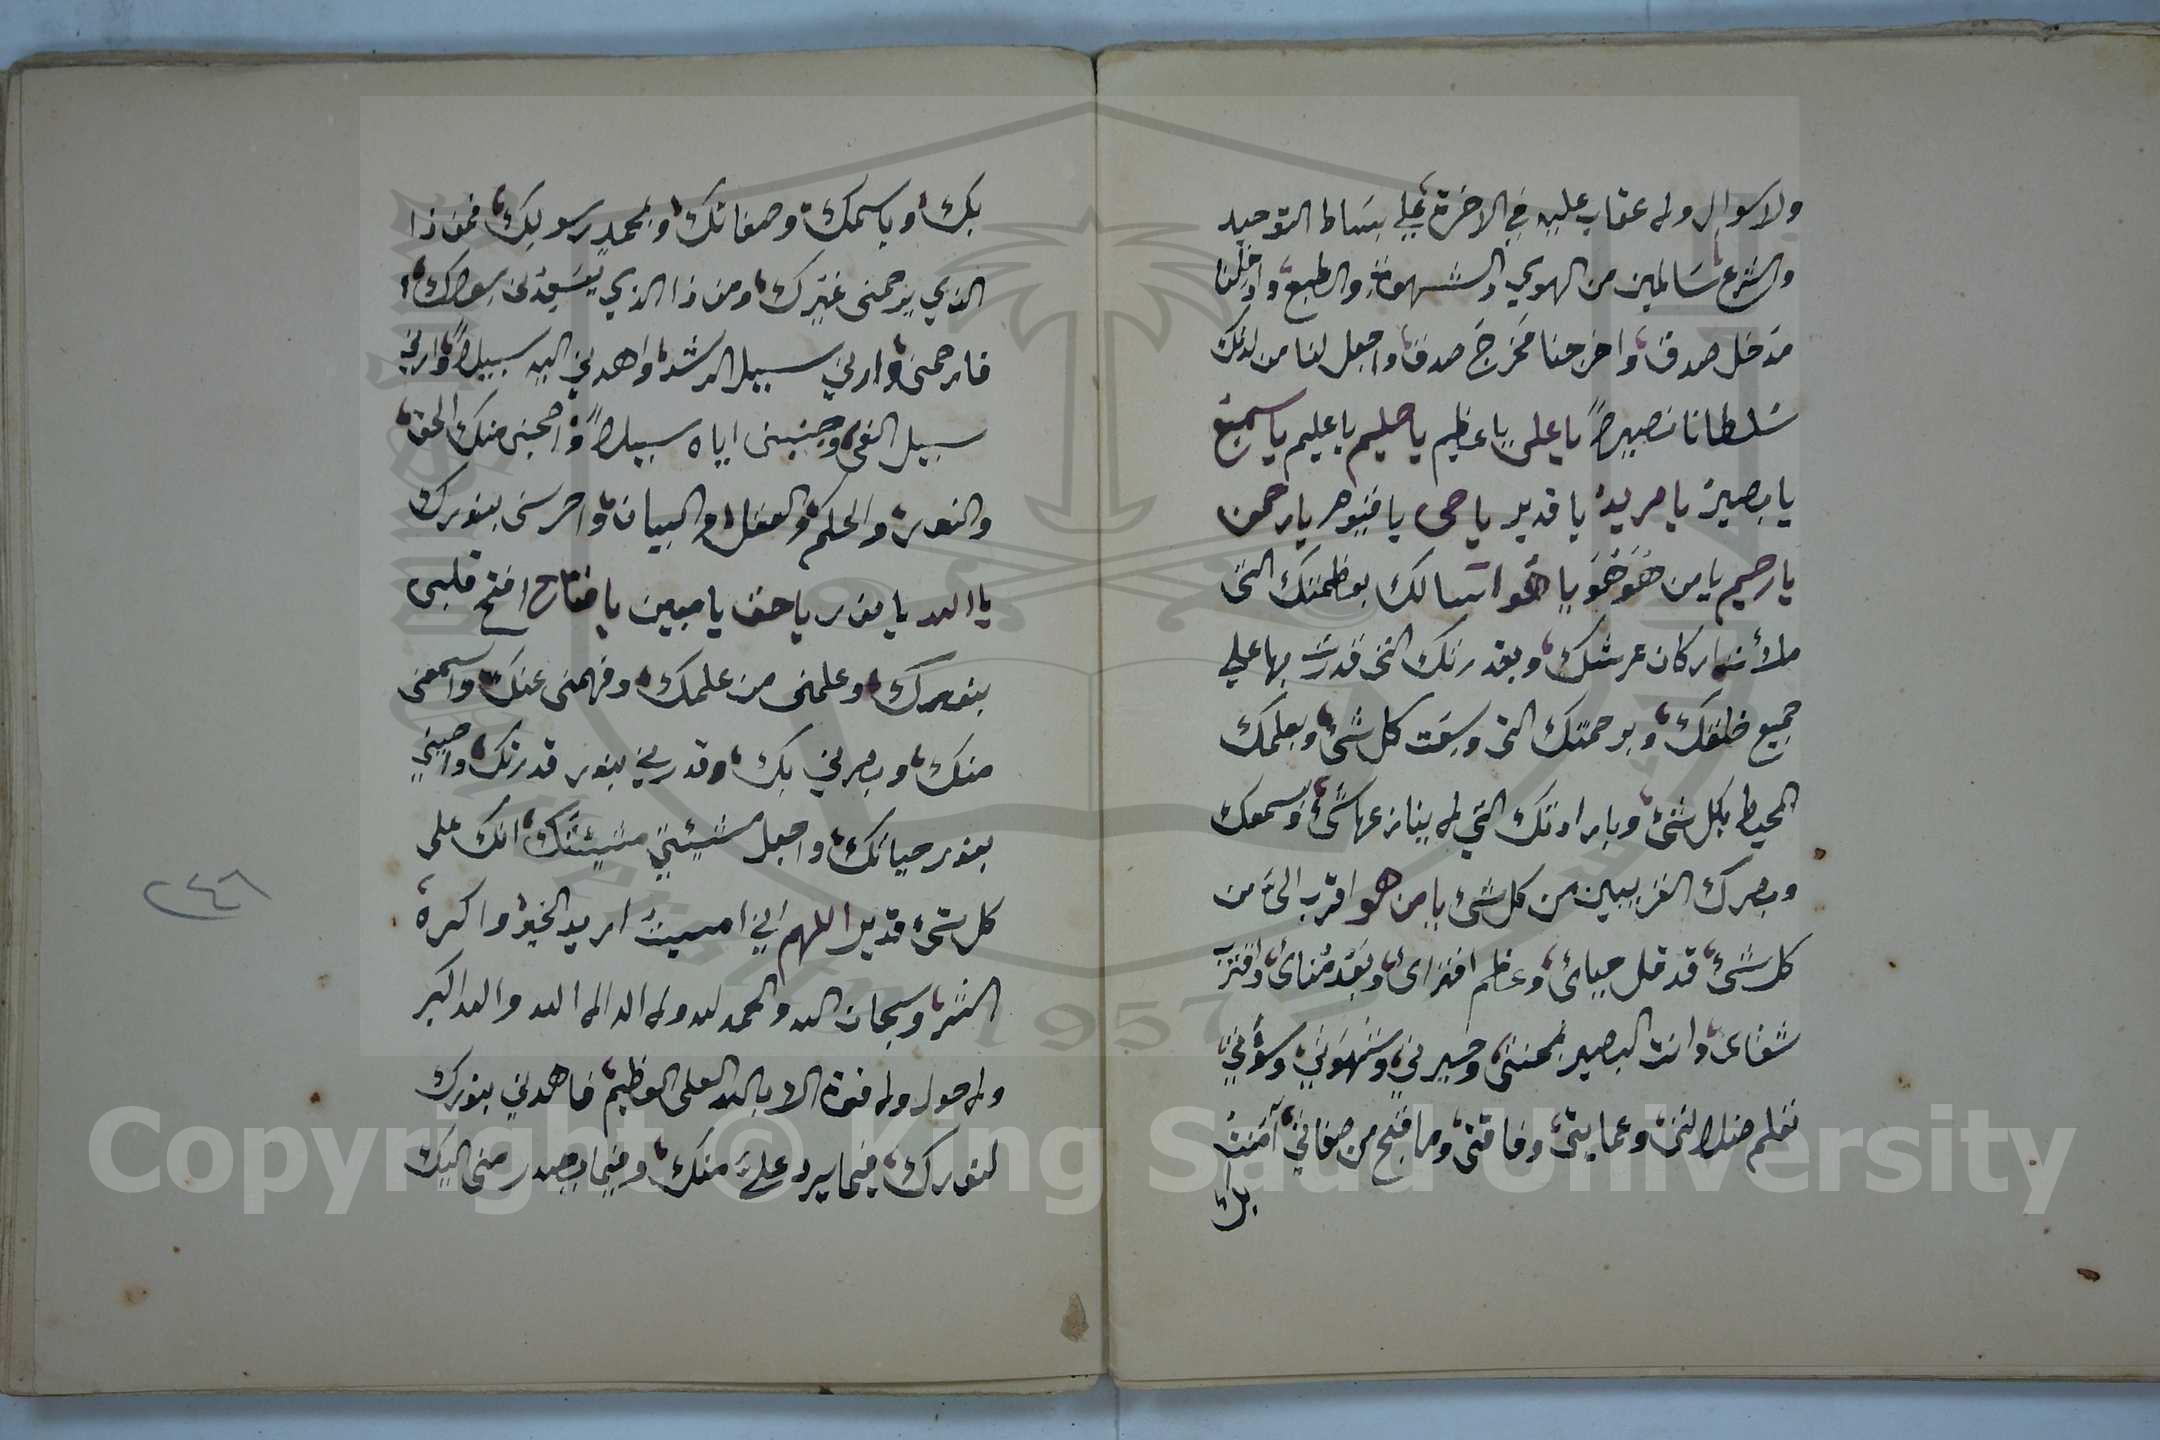 ولا سوال ولا عقاب عليه في الاخرة على بساط التوحيد
والشرع سَالمين من الهوي والشهوة والطبع وادخلنا
مَدخل صدق واخرجنا مَخرجَ صدق واجعل لنا من لدنك
سُلطانا نصيراً يا على يا عظيم يا حليم يا عليم يا سميع
يا بصير يا مريد يا قدير يا حى يا قيوم يا رحمن
يا رحيم يا من هُوَ هُوَ يا هُو اسالك بعظمتك التى
ملأت اركان عرشك وبقدرتك التى قدرت بها على
جميع خلقك وبرحمتك التى وسِعَت كل شئ وبعلمك
المحيط بكل شئ وبارادتك التي لا ينازعها شئ وسمعك
وبصرك القريبين من كل شئ يا من هو اقرب الىَّ من
كل شئ قد قل حيائ وعظم افترائ وبَعُدَ مُنائ واقترب
شقاى وانت البصير بمحنتى وحيرتي وشهوتي وسوئتي
تعلم ضلالتى وعمايتى وفاقتى وما قبح من صفاتي آمنتُ
بك
بك وباسمك وصفاتك وبمحمد رسولك فمن ذا
الذي يرحمنى غيرك ومن ذا الذي يُسعِدنى سواك
فارحمنى وارني سبيل الرشد واهدني اليه سبيلاً وارني
سبيل الغى وجنبنى اياه سبيلاً واصحبنى منك الحق
والنور والحكم والعقل والبيان واحرسنى بنورك
يا الله يا نور يا حق يا مبين يا فتاح افتح قلبى
بنورك وعلمنى من علمك وفهمنى عنك واسمعنى
منك وبصرني بك وقدرني بنور قدرتك واحيني
بنور حياتك واجعل مشيئتي مشيئتك انك على
كل شئ قدير اللهم اني امسيتُ اريد الخير واكره
الشر وسبحان الله والحمد لله ولا اله الا الله والله اكبر
ولا حول ولا قوة الا بالله العلى العظيم فاهدني بنورك
لنورك فيما يرد علىَّ منك وفيما يصدر منى اليك
٢٤٦
Copyright © King Saud University
1957